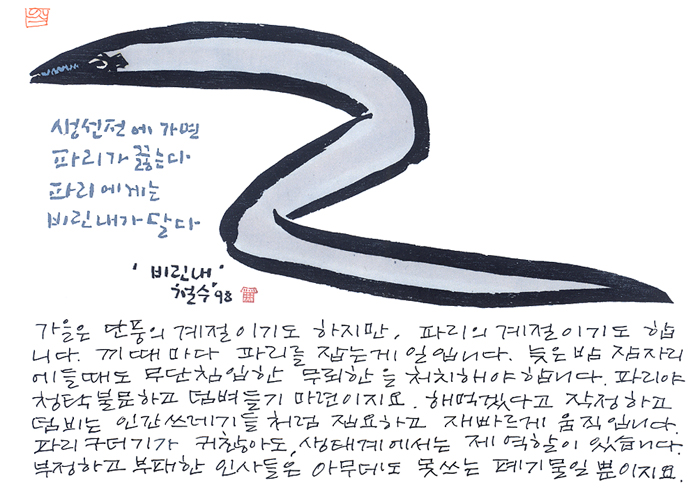 생선전에 가면
파리가 끓는다
파리에게는
비린내가 달다
'비린내'
철수 '98
가을은 단풍의 계절이기도 하지만, 파리의 계절이기도 합
니다. 끼때마다 파리를 잡는게 일입니다. 늦은 밤 잠자리
에 들때도 무단침입한 무뢰한을 처치해야 합니다. 파리야
청탁불문하고 덤벼들기 마련이지요. 해먹겠다고 작정하고
덤비는 인간쓰레기들처럼 집요하고 재빠르게 움직입니다.
파리 구더기가 귀찮아도, 생태계에서는 제 역할이 있습니다.
부정하고 부패한 인사들은 아무데도 못쓰는 폐기물일 뿐이지요.